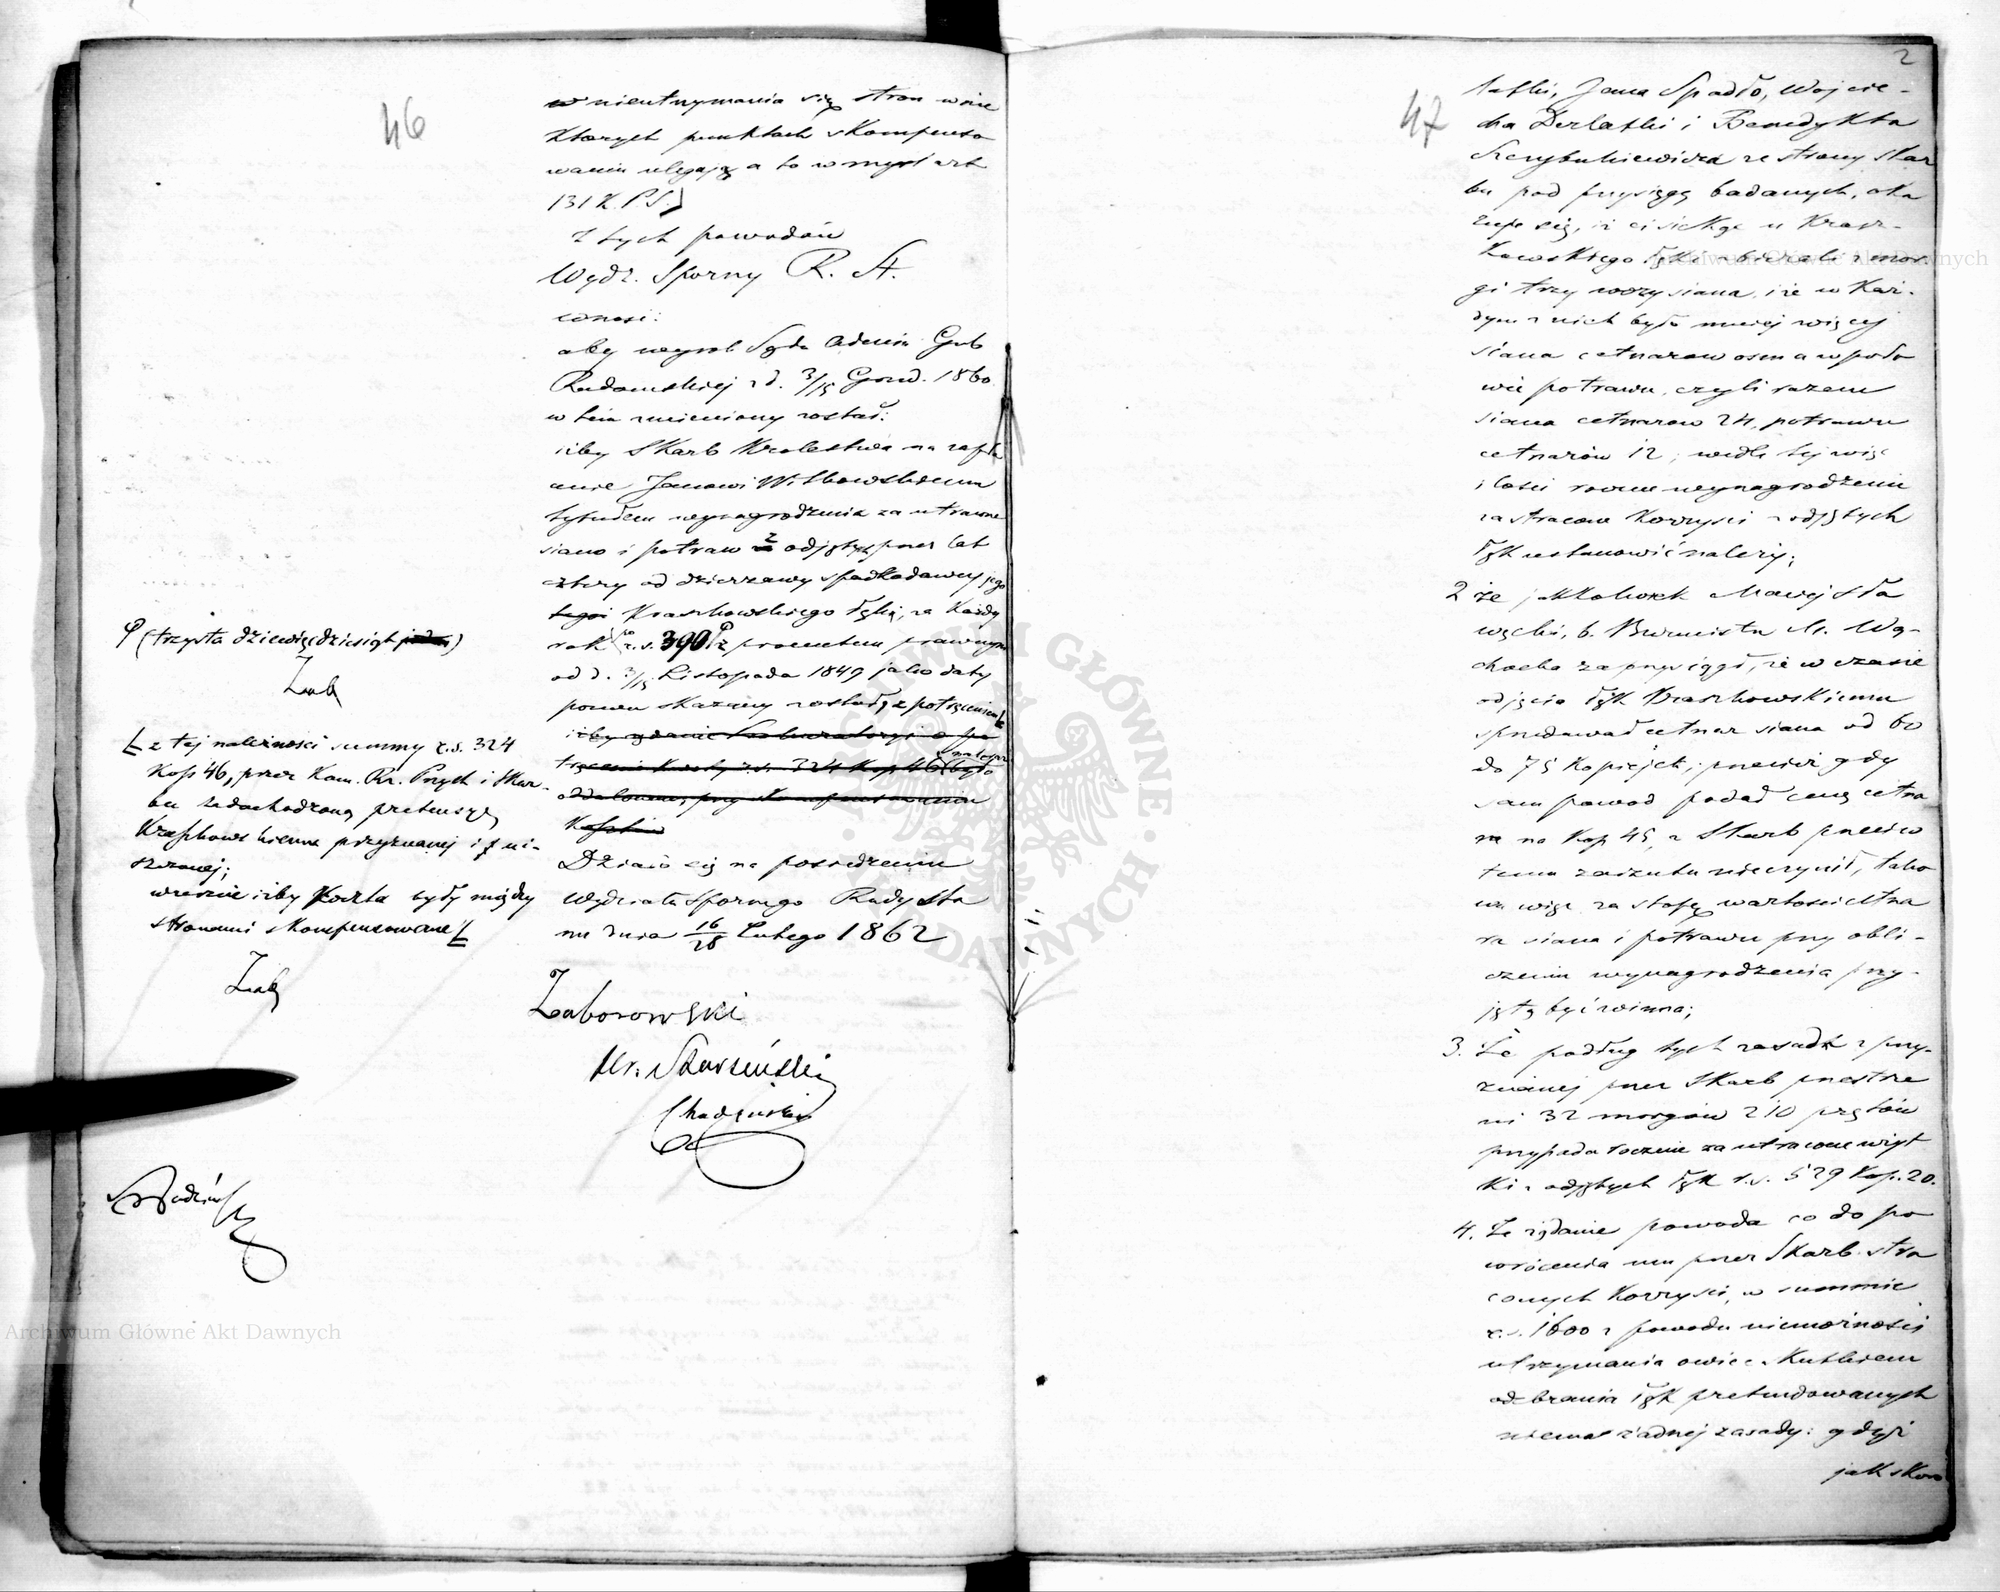 46
w nieutrzymania się stron w nie
których punktach skompenso
waniu ulegają a to w myśl art
131 K.P.S.)
Z tych powodów
Wydz. Sporny R. St.
wnosi:
aby wyrok Sądu Admin Gub
Radomskiej z d. 3/15 Grud. 1860
w tém zmieniony został:
iżby Skarb Królestwa na zapła
cenie Janowi Witkowskiemu
tytułem wynagrodzenia za utracone
siano i potraw z odjętych przez lat
cztery od dzierżawy spadkodawcy jego
Kraskowskiego łąk, za każdy
rok po r.s. 390 ꟼ z procentem prawnym
od d. 3/15 Listopada 1849 jako daty
pozwu skazany został, z potrąceniem
iżby żądanie
trącenie kwoty r.s. 324 kop 46 było
oddalone, przy skompensowaniu
kosztów
Działo się na posiedzeniu
Wydziału Spornego Rady Sta
nu dnia 16/28 Lutego 1862
Zaborowski
Chądzyński
ꟼ (trzysta dziewięćdziesiąt)
Zab
z tej należności summy r.s. 324
kop 46, przez Kom. Rz. Przych i Skar-
bu zadochodzoną pretensyę
Kraskowskiemu przyznanej i zni-
szczonej;
wreszcie iżby koszta były między
stronami skompensowane
Zab
2
47
latki, Jana Spadło, Wojcie-
cha Derlatki i Benedykta
ze strony Skar
bu pod przysięgą badanych, oka
zuje się, iż ci siekąc u Krasz-
kowskiego łąki zbierali z mor
gi trzy wozy siana, i że w każ-
dym z nich było mniej więcej
siana cetnarów osm a w poło
wie potrawu, czyli razem
siana cetnarów 24, potrawu
cetnarów 12; wedle tej więc
ilości roczne wynagrodzenie
za stracone korzyści z odjętych
łąk ustanowić należy;
2 że jakkolwiek Maciej Sła
węcki, b. Burmistrz M. Wą-
chocka zaprzysiągł, że w czasie
odjęcia łąk Kraszkowskiemu
sprzedawał cetnar siana od 60
do 75 kopiejek; przecież gdy
sam powod podał cenę cetna
ra na kop 45, a Skarb przeciw
temu zarzutu nie czynił, tako
wa więc za stopę wartości cetna
ra siana i potrawu przy obli-
czeniu wynagrodzenia przy-
jętą być winna;
3. Że podług tych zasad z przy-
znanej przez Skarb przestrze
ni 32 morgów 210 prętów
przypada rocznie za utracone użyt
ki z odjętych łąk r.s. 529 kop. 20.
4. Że żądanie powoda co do po
wrócenia mu przez Skarb stra
conych korzyści, w summie
r.s. 1600 z powodu niemożności
utrzymania owiec skutkiem
odebrania łąk pretendowanych
niema żadnej zasady: gdyż
jak skoro
Archiwum Główne Akt Dawnych
Archiwum Główne Akt Dawnych
ARCHIWUM GŁÓWNE AKT DAWNYCH